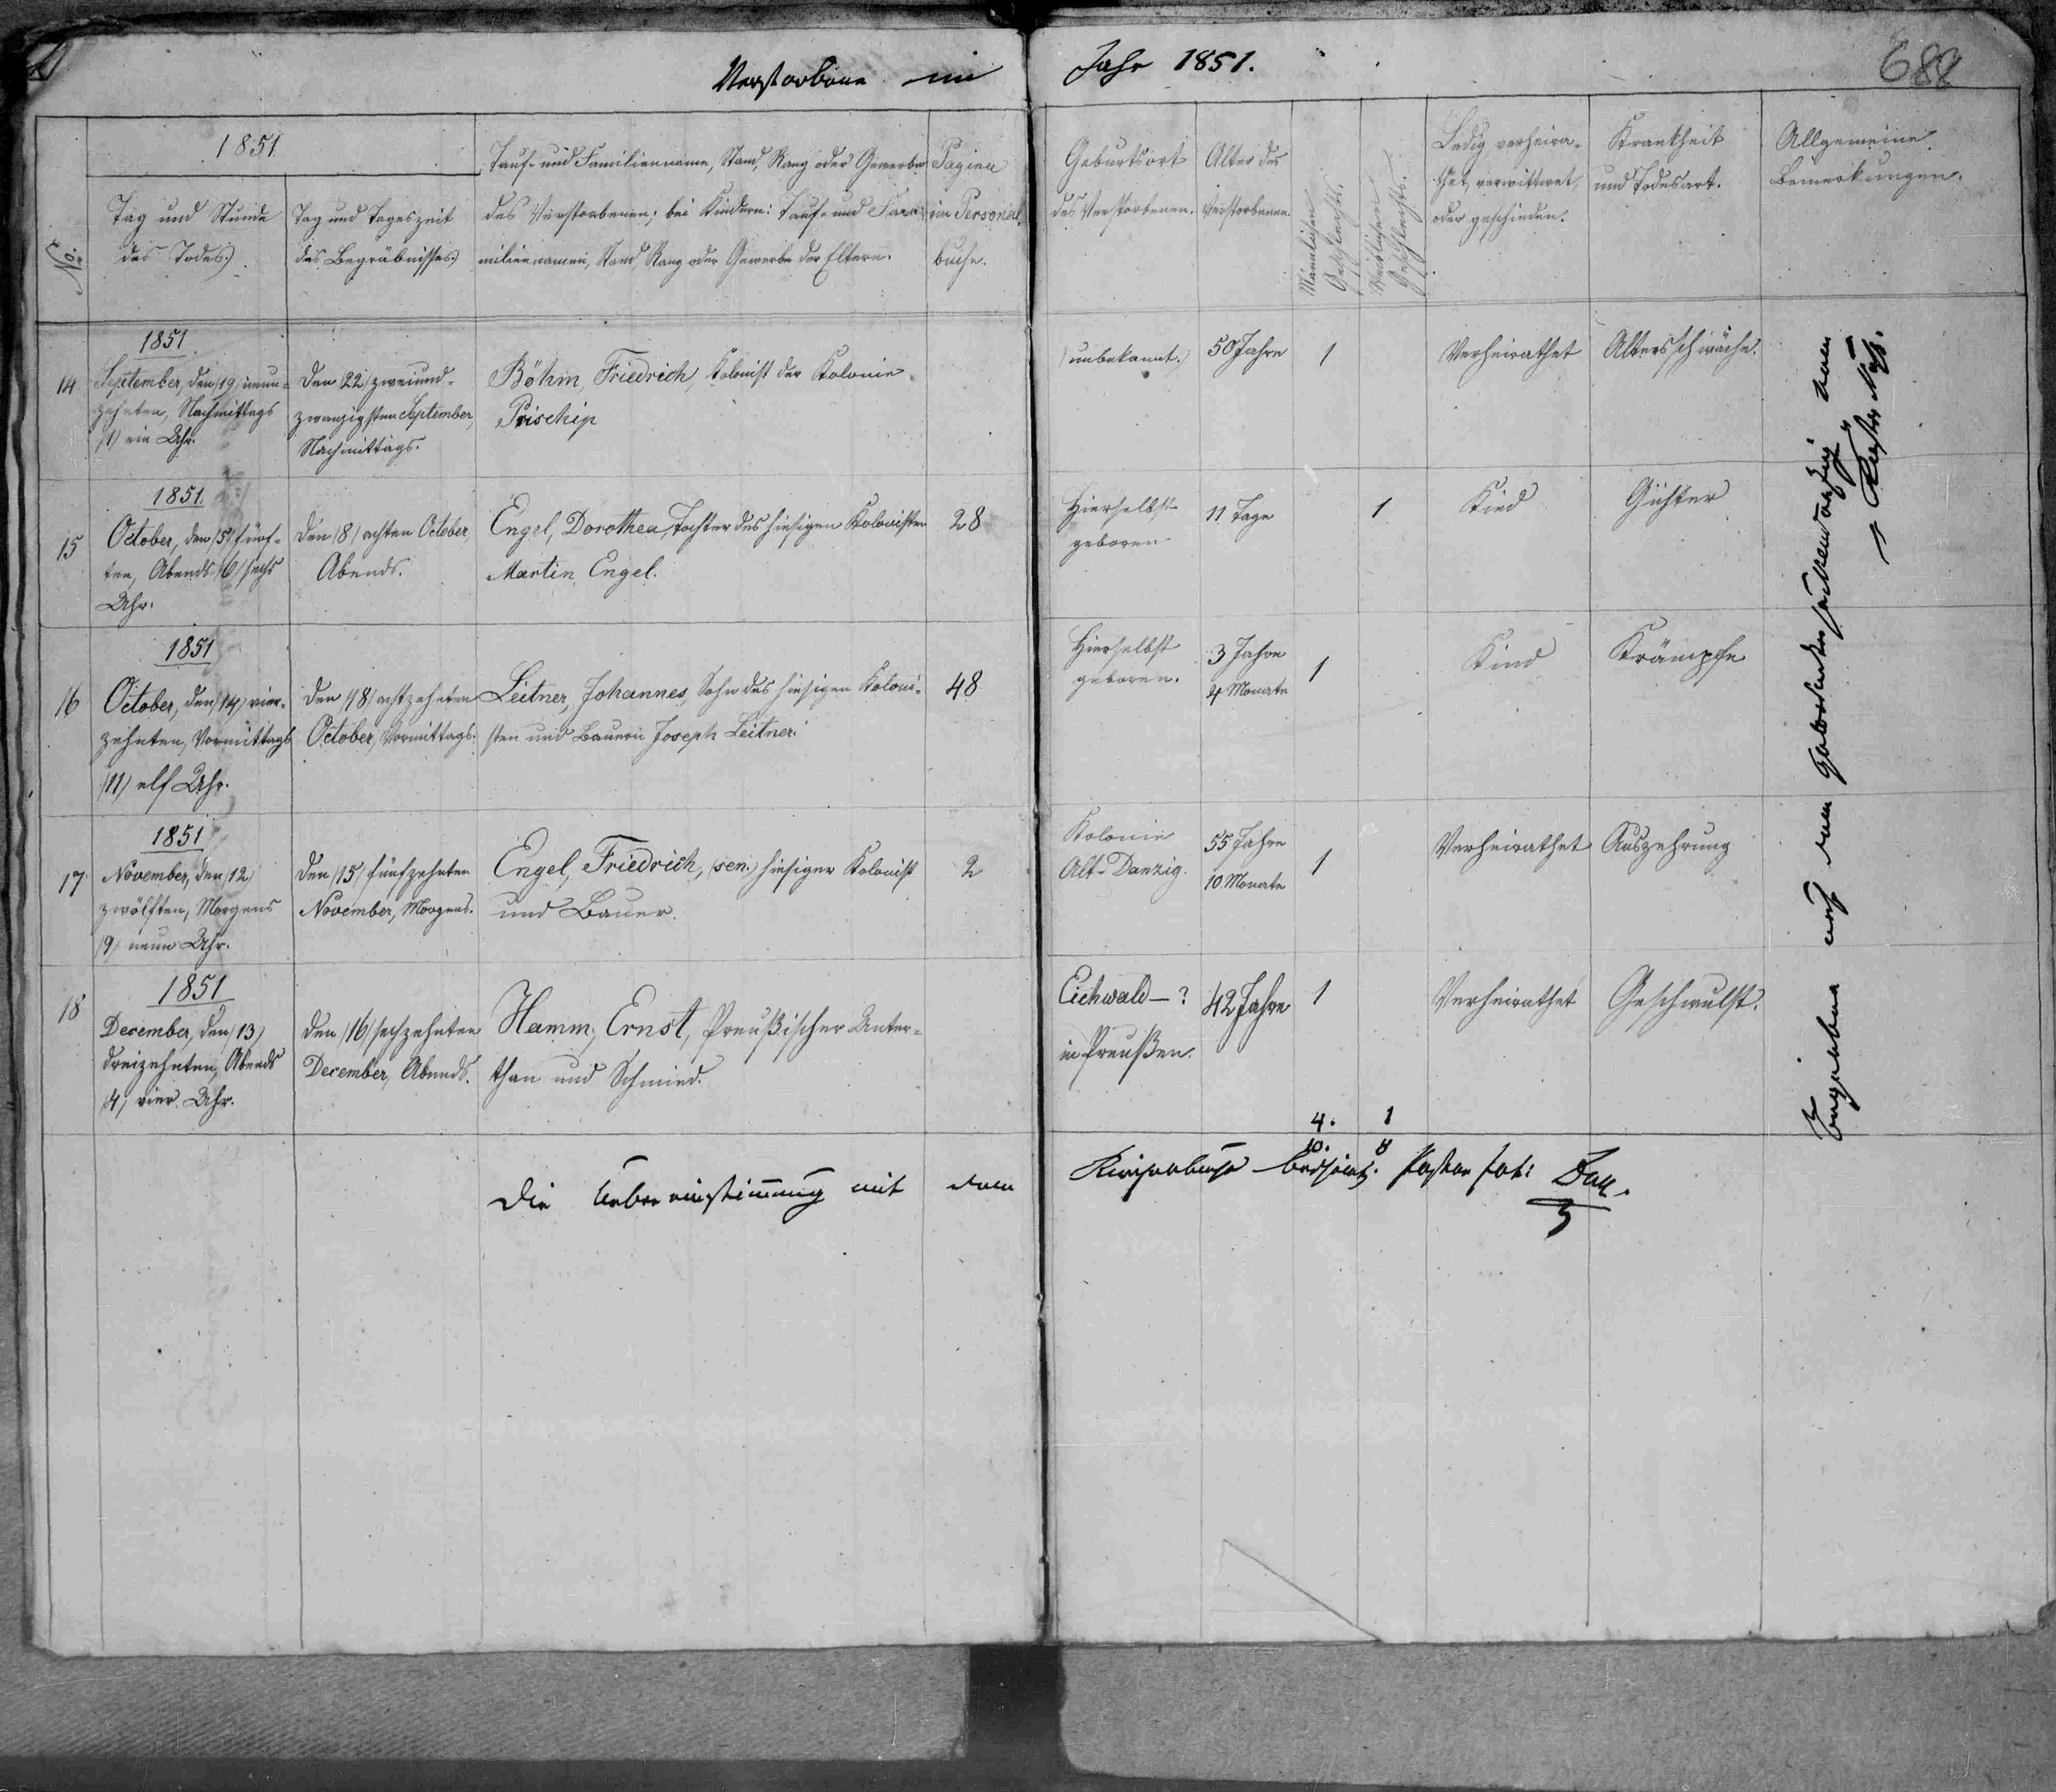 Verstorbene im Jahr 1851.
688
No.
1851.
Tag und Stunde
des Todes.
Tag und Tageszeit
des Begräbnisses.
Tauf- und Familienname, Stand, Rang oder Gewerbe
des Verstorbenen; bei Kindern: Tauf- und Fa-
miliennamen, Stand, Rang oder Gewerbe der Eltern.
Pagina
im Personal-
buche.
Geburtsort
des Verstorbenen.
Alter des
Verstorbenen.
Männlichen
Geschlechts.
Weiblichen
Geschlechts.
Ledig, verheira-
thet, verwittwet,
oder geschieden.
Krankheit
und Todesart.
Allgemeine
Bemerkungen.
14
1851.
September, den /19/ neun-
zehnten, Nachmittags
/1/ ein Uhr.
Den /22/ zweiund-
zwanzigsten September,
Nachmittags.
Böhm, Friedrich, Kolonist der Kolonie
Prischip
(unbekannt.)
50 Jahre
1
Verheirathet
Altersschwäche.
15
1851.
October, den /5/ fünf-
ten, Abends /6/ sechs
Uhr.
Den /8/ achten October,
Abends.
Engel, Dorothea, Tochter des hiesigen Kolonisten
Martin Engel.
28
Hierselbst
geboren
11 Tage
1
Kind
Gichter
16
1851
October, den /14/ vier-
zehnten, Vormittags
/11/ elf Uhr.
Den /18/ achtzehnten
October, Vormittags.
Leitner, Johannes, Sohn des hiesigen Koloni-
sten und Bauern Joseph Leitner.
48
Hierselbst
geboren.
3 Jahre
4 Monate
1
Kind
Krämpfe
17
1851
November, den /12/
zwölften, Morgens
/9/ neun Uhr.
Den /15/ fünfzehnten
November, Morgens.
Engel, Friedrich, (sen.) hiesiger Kolonist
und Bauer.
2
Kolonie
Alt-Danzig.
55 Jahre
10 Monate
1
Verheirathet
Auszehrung
18
1851
December, den /13/
dreizehnten, Abends
/4/ vier Uhr.
Den /16/ sechzehnten
December, Abends.
Hamm, Ernst, Preußischer Unter-
than und Schmied.
Eichwald - ?
in Preußen.
42 Jahre
1
Verheirathet
Geschwulst.
4. 1
10. 8
Die Uebereinstimmung mit dem Kirchenbuche bescheinigt. Pastor